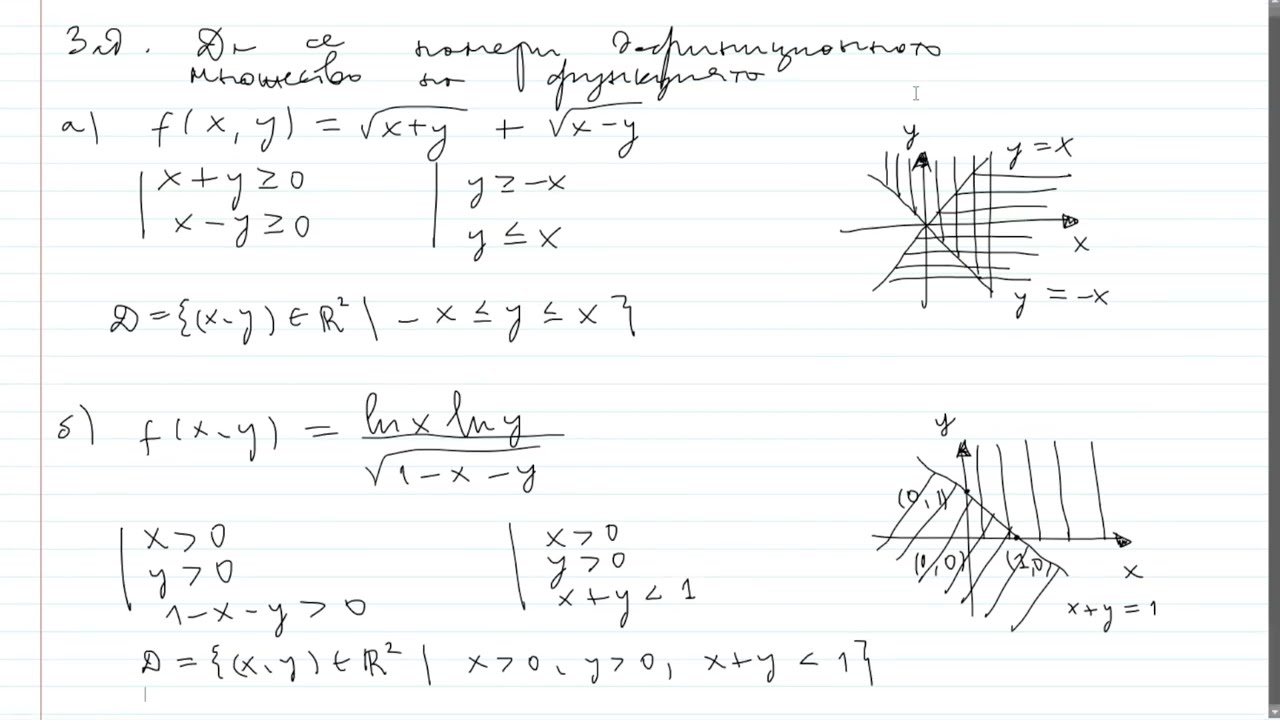 Зад. Да се намери дефиниционното
множество на функцията
а) f(x, y) = √(x+y) + √(x-y)
x + y ≥ 0
x - y ≥ 0
y ≥ -x
y ≤ x
D = {(x, y) ∈ ℝ² | -x ≤ y ≤ x}
y
y = x
x
y = -x
б) f(x, y) = (ln x ln y) / √(1-x-y)
x > 0
y > 0
1-x-y > 0
x > 0
y > 0
x + y < 1
D = {(x, y) ∈ ℝ² | x > 0, y > 0, x+y < 1}
y
(0, 1)
(0, 0)
(1, 0)
x
x+y = 1